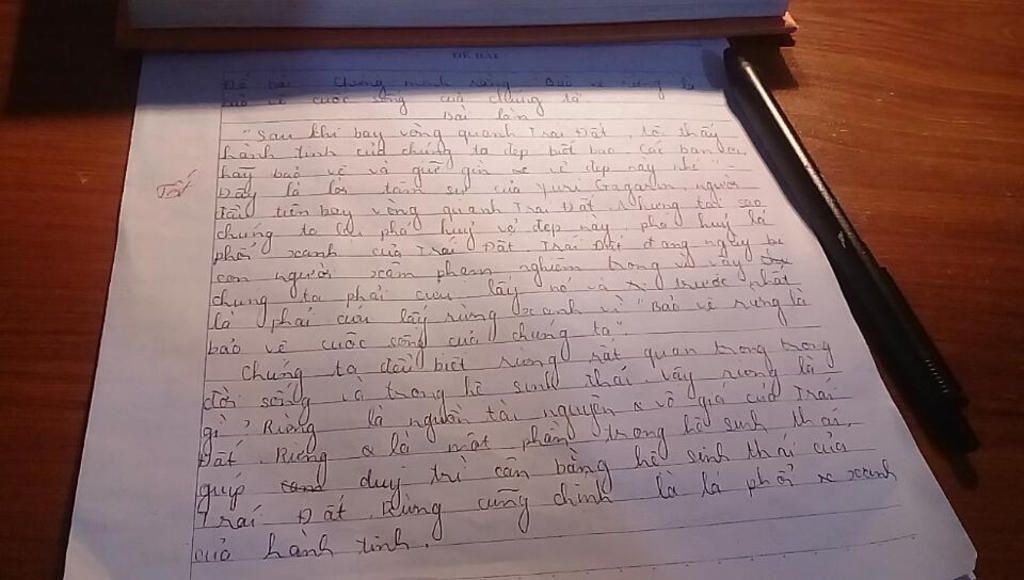 ĐỀ BÀI
Đề bài: Chứng minh rằng "Bảo vệ rừng là
bảo vệ cuộc sống của chúng ta
Bài làm
"Sau khi bay vòng quanh Trái Đất, tôi thấy
hành tinh của chúng ta đẹp biết bao. Các bạn ơi,
hãy bảo vệ và giữ gìn vẻ đẹp này nhé" -
Tốt
Đây là lời tâm sự của Yuri Gagarin, người
đầu tiên bay vòng quanh Trái Đất. Nhưng tại sao
chúng ta lại phá huỷ vẻ đẹp này, phá huỷ lá
phổi xanh của Trái Đất. Trái Đất đang ngày bị
con người xâm phạm nghiêm trọng vì vậy
chúng ta phải cứu lấy nó và trước nhất
là phải cứu lấy rừng xanh vì "Bảo vệ rừng là
bảo vệ cuộc sống của chúng ta"
Chúng ta đều biết rừng rất quan trong trong
đời sống và trong hệ sinh thái. Vậy rừng là
gì? Rừng là nguồn tài nguyên vô giá của Trái
Đất. Rừng là một phần trong hệ sinh thái,
giúp duy trì cân bằng hệ sinh thái của
Trái Đất. Rừng cũng chính là lá phổi xanh
của hành tinh.